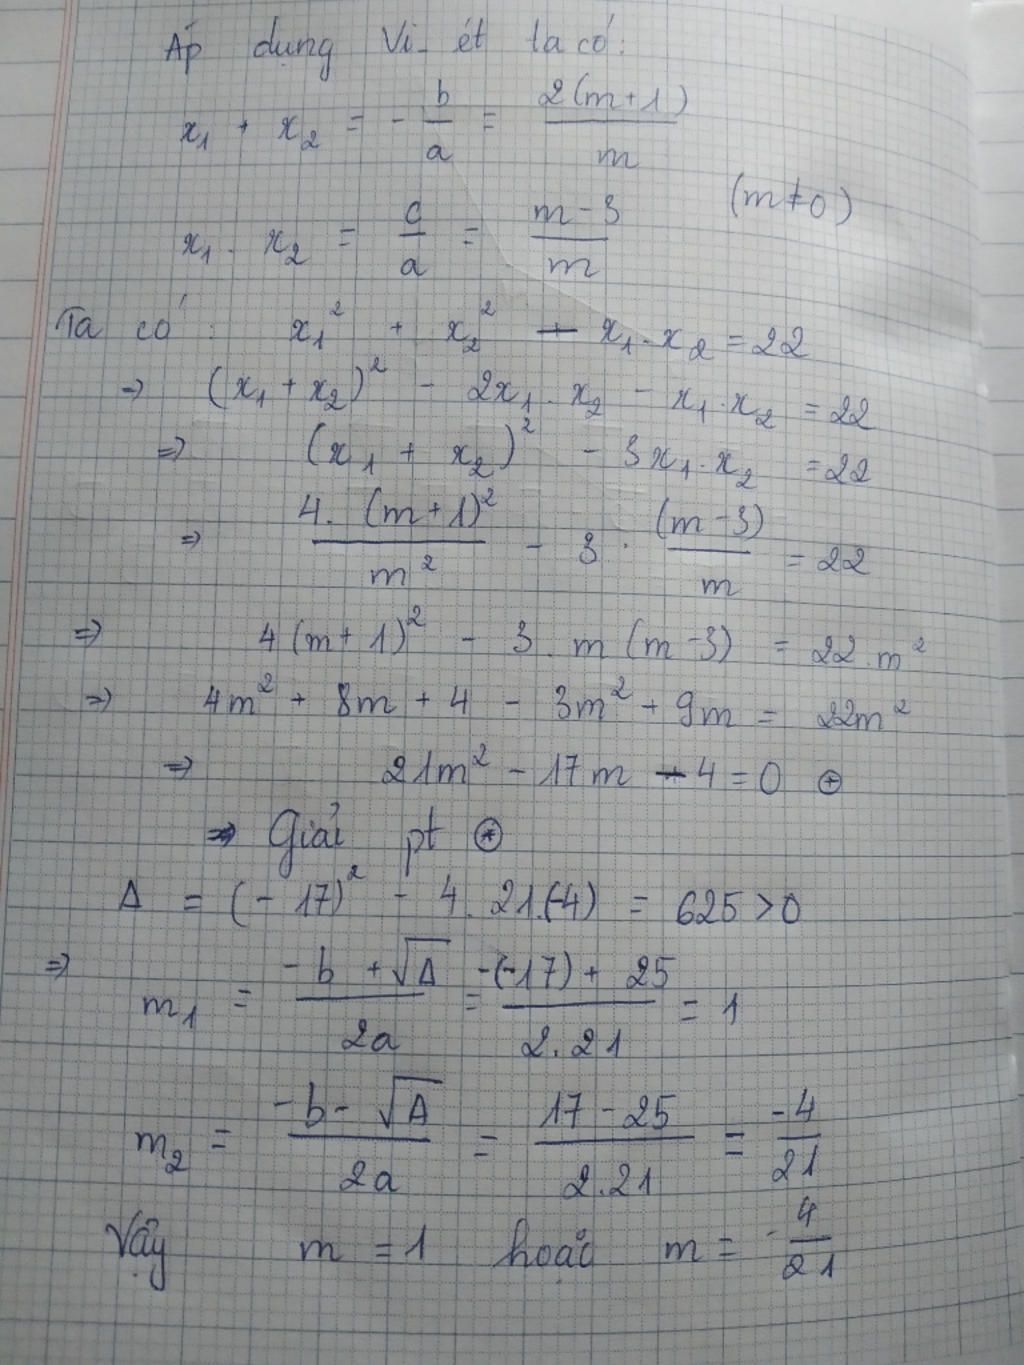 Áp dụng Vi-ét ta có:
x₁ + x₂ = -b/a = 2(m+1)/m
x₁ . x₂ = c/a = (m-3)/m (m≠0)
Ta có: x₁² + x₂² - x₁.x₂ = 22
=> (x₁ + x₂)² - 2x₁.x₂ - x₁.x₂ = 22
=> (x₁ + x₂)² - 3x₁.x₂ = 22
=> 4.(m+1)²/m² - 3.(m-3)/m = 22
=> 4(m+1)² - 3.m(m-3) = 22.m²
=> 4m² + 8m + 4 - 3m² + 9m = 22m²
=> 21m² - 17m - 4 = 0 ⊕
=> Giải pt ⊛
Δ = (-17)² - 4.21.(-4) = 625 > 0
=> m₁ = (-b + √Δ)/2a = (-(-17) + 25)/2.21 = 1
m₂ = (-b - √Δ)/2a = (17 - 25)/2.21 = -4/21
Vậy m = 1 hoặc m = -4/21